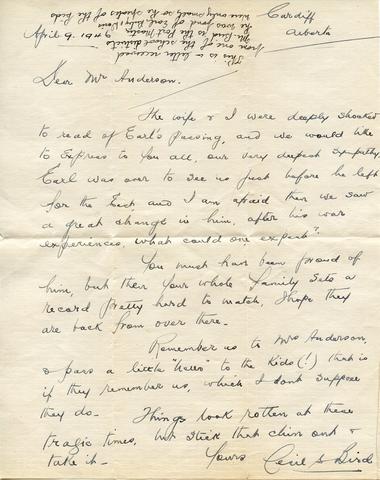 Cardiff
Alberta
April 6. 1946
This is a letter received
from one of the school districts
Mr. Bird to the Port
was fond of Earl
were only
he speaks of the kids
Dear Mr Anderson.
The wife & I were deeply shocked
to read of Earl's passing, and we would like
to express to you all, our very deepest sympathy.
Earl was over to see us just before he left
for the East and I am afraid then we saw
a great change in him, after his war
experiences, what could one expect?
You must have been proud of
him, but then your whole family sets a
record pretty hard to match, I hope they
are back from over there.
Remember us to Mrs Anderson,
& pass a little "hello" to the kids (!) that is
if they remember us, which I dont suppose
they do. Things look rotten at these
tragic times, but stick that chin out &
take it.
Yours Cecil S Bird